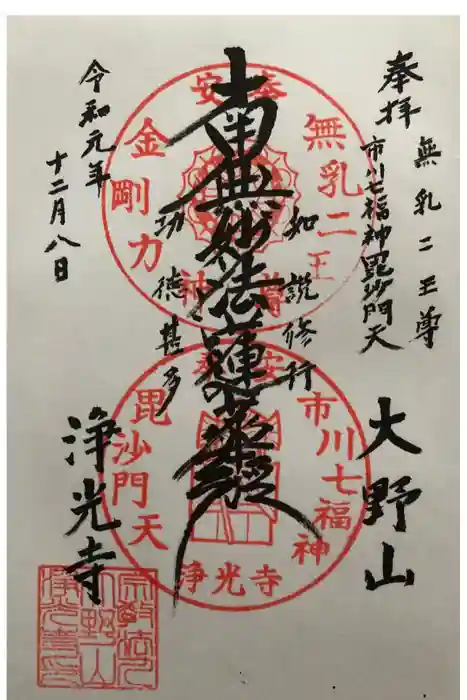 奉拝
無乳二王尊
市川七福神毘沙門天
大野山
南無妙法蓮華経
如説修行
功徳甚多
令和元年
十二月八日
浄光寺
安泰
無乳二王
尊神
金剛力
安泰
市川七福神
毘沙門天
浄光寺